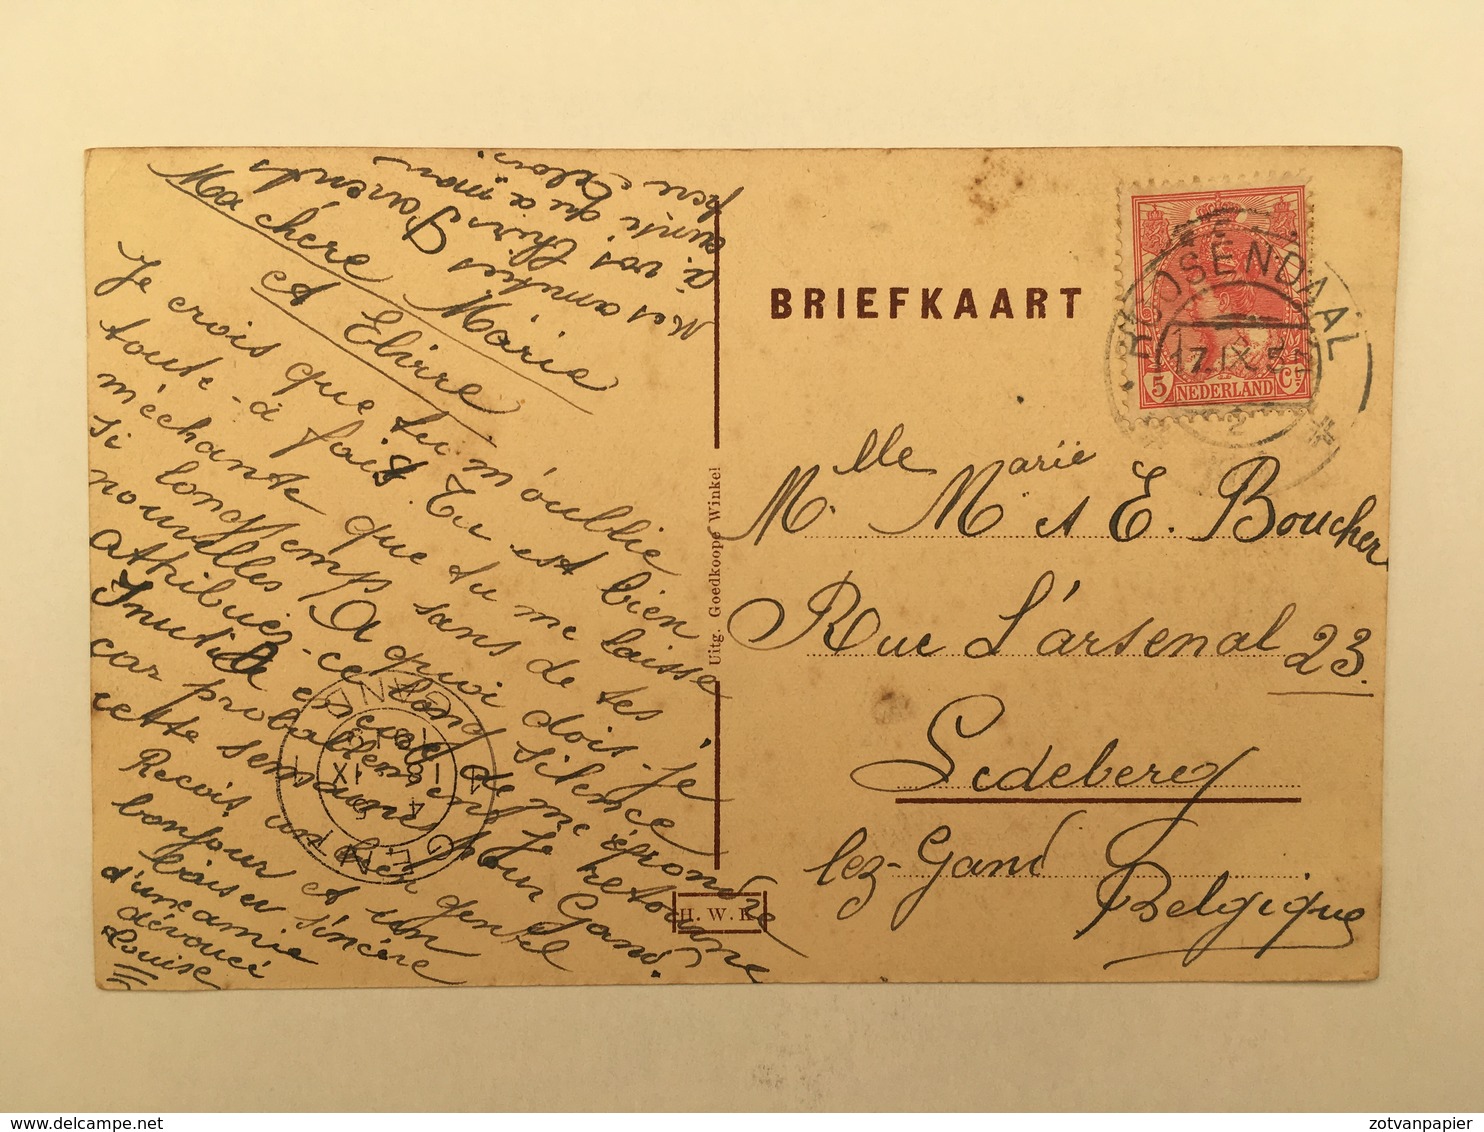 Ma chère Marie
et Elvire
Je crois que tu m'oublie
toute-à fait. Tu est bien
méchante que tu me laisse
si longtemps sans de tes
nouvelles. A quoi dois-je
attribuez-ce long silence
Inutile de me répondre
car probablement je retourne
cette semaine pour Gand.
Recois un bien gentil
bonjour et un
baiser sincère
d'une amie
dévouée
Louise
Mes amitiés
à vos Chèrs Parents
ainsi qu'a mon
père
BRIEFKAART
Uitg. Goedkoope Winkel
H. W. K.
ROOSENDAAL
17.IX
2
5 NEDERLAND Ct
Mlle Marie
M. M et E. Boucher
Rue L'arsenal 23.
Ledeberg
lez-Gand
Belgique
GENT
GAND
IX
delcampe.net
zotvanpapier